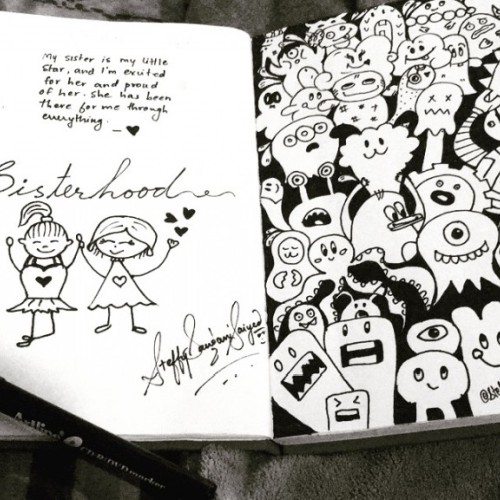 My sister is my little
star, and I'm excited
for her and proud
of her. she has been
there for me through
everything.
Sisterhood
CD/DVD marker